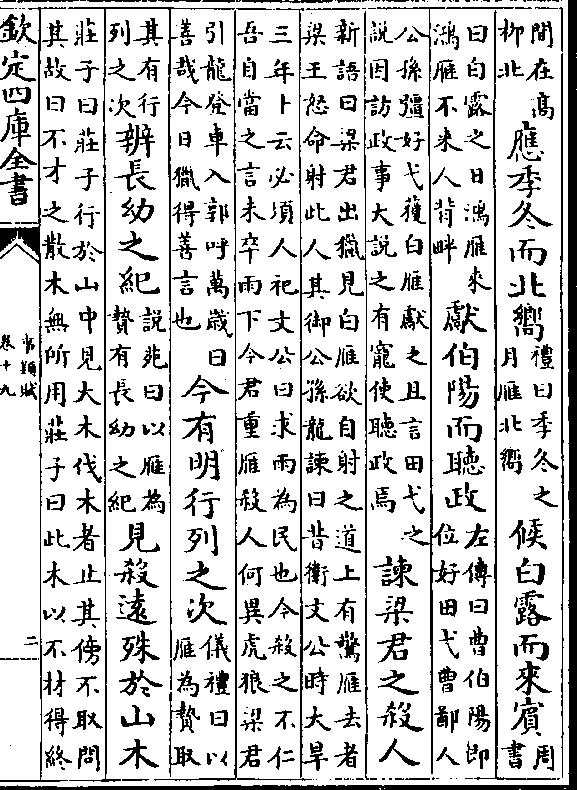 間在高柳北應季冬而北嚮禮曰季冬之月雁北嚮候白露而來賓周書
曰白露之日鴻雁來鴻雁不来人背畔獻伯陽而聽政左傳曰曹伯陽即位好田弋曹鄙人
公孫彊好弋獲白雁獻之且言田弋之說因訪政事大說之有寵使聽政焉諫梁君之殺人
新語曰梁君出獵見白雁欲自射之道上有驚雁去者梁王怒命射此人其御公孫龍諫曰昔衛文公時大旱
三年卜云必須人祀文公曰求雨為民也今殺之不仁吾自當之言未卒雨下今君重雁殺人何異虎狼梁君
引龍登車入郭呼萬歲曰善哉今日獵得善言也今有明行列之次儀禮曰以雁為贄取
其有行列之次辨長幼之紀說苑曰以雁為贄有長幼之紀見殺遠殊於山木
莊子曰莊子行於山中見大木伐木者止其傍不取問其故曰不才之散木無所用莊子曰此木以不材得終
欽定四庫全書
事類賦
卷十九
二